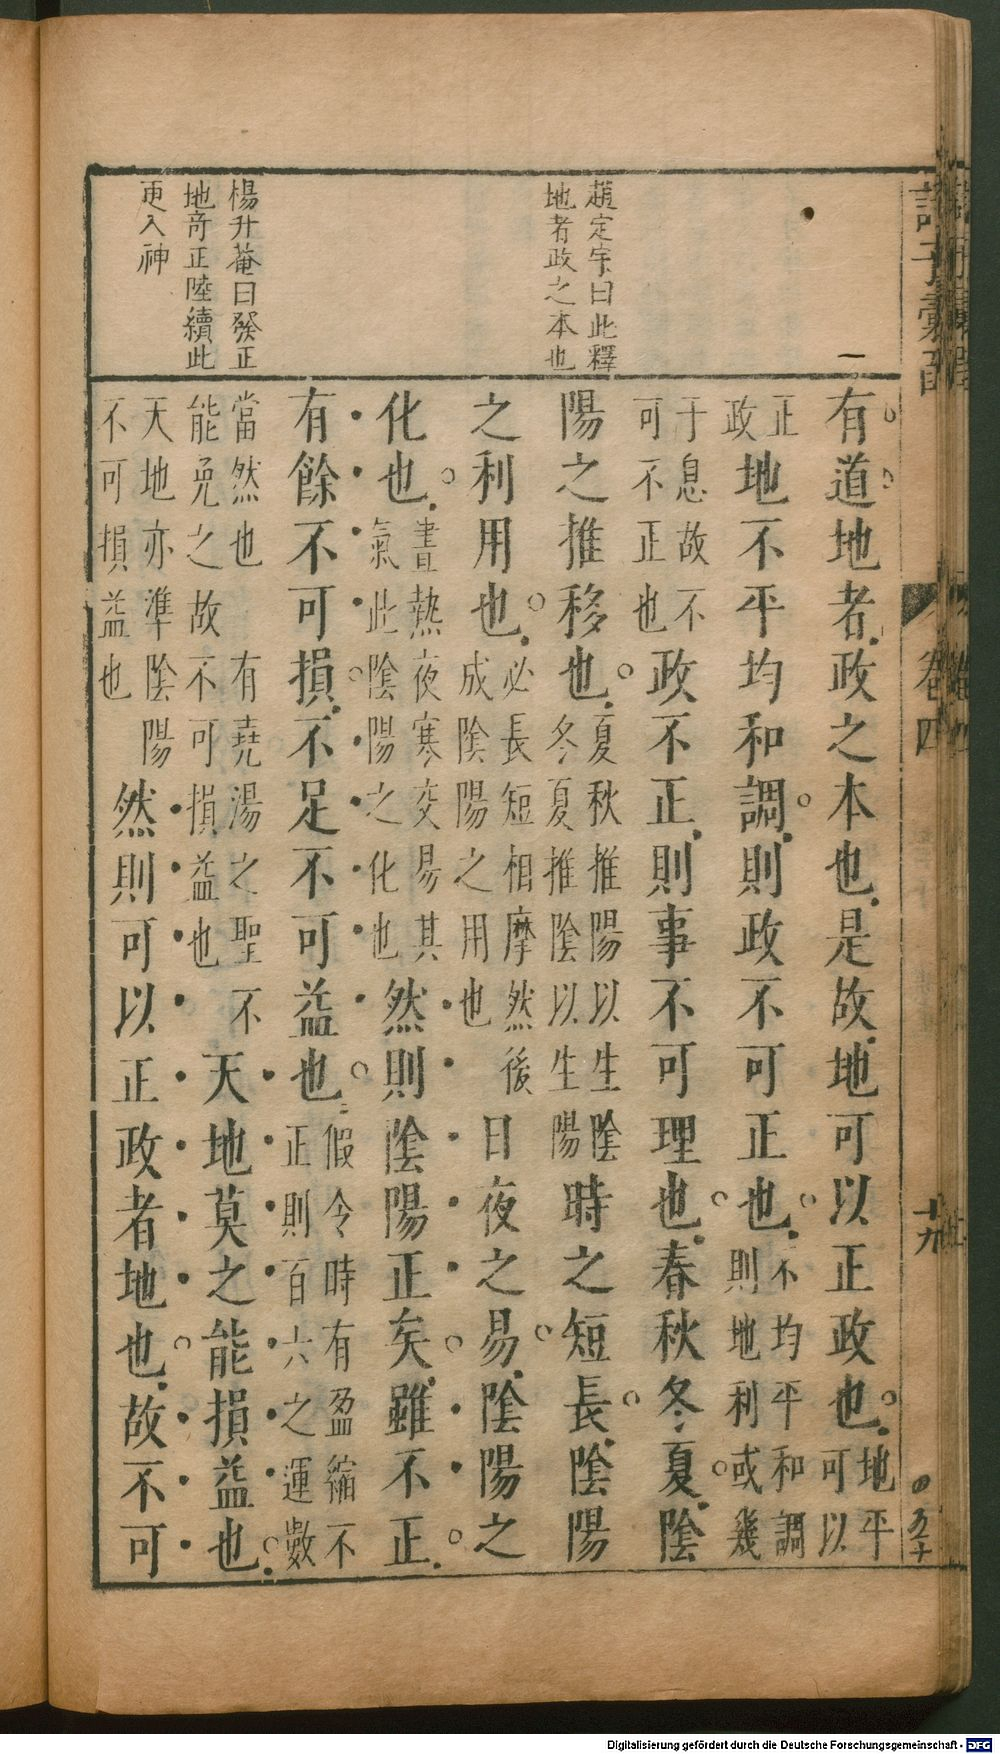 趙定宇曰此釋
地者政之本也
楊升菴曰發正
地奇正陸續此
更入神
一
有道地者政之本也是故地可以正政也地平
可以
正
政地不平均和調則政不可正也不均平和調
則地利或幾
于息故不
可不正也政不正則事不可理也春秋冬夏陰
陽之推移也夏秋推陽以生陰
冬夏推陰以生陽時之短長陰陽
之利用也必長短相摩然後
成陰陽之用也日夜之易陰陽之
化也晝熱夜寒交易其
氣此陰陽之化也然則陰陽正矣雖不正
有餘不可損不足不可益也假令時有盈縮不
正則百六之運數
當然也 有堯湯之聖不
能免之故不可損益也天地莫之能損益也
天地亦準陰陽
不可損益也然則可以正政者地也故不可
卷四
十九
Digitalisierung gefördert durch die Deutsche Forschungsgemeinschaft - DFG